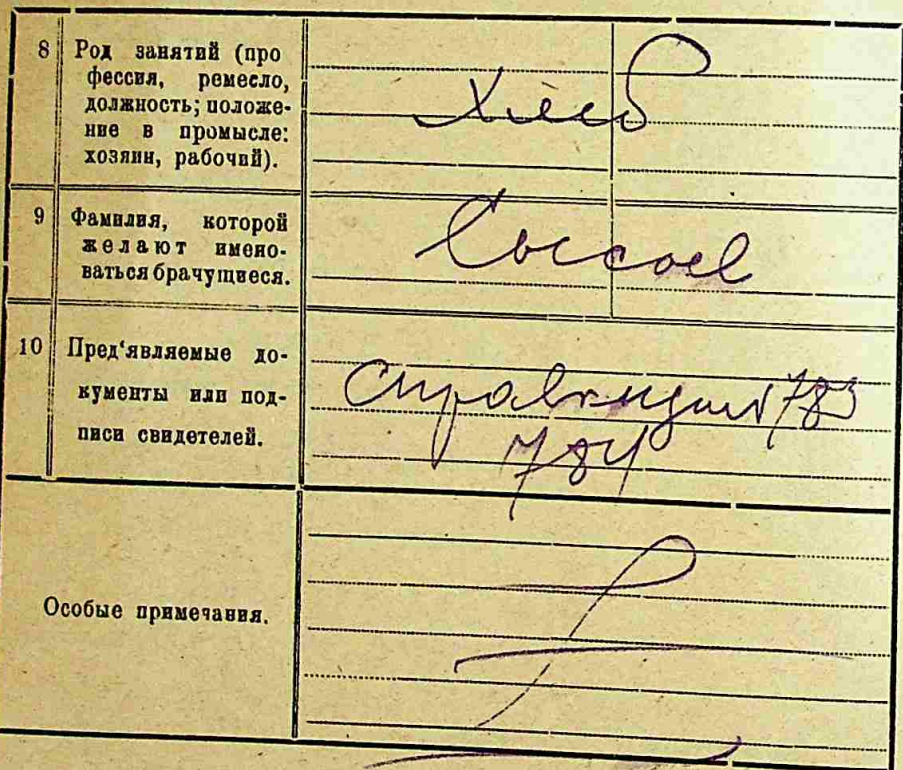 8 Род занятий (про
фессия, ремесло,
должность; положе-
ние в промысле:
хозяин, рабочий).
Хлеб
9 Фамилия, которой
желают имено-
ваться брачущиеся.
10 Пред'являемые до-
кументы или под-
писи свидетелей.
783
784
Особые примечания.